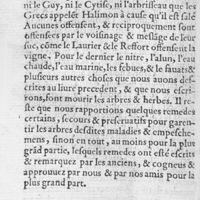 ni le Guy, ni le Cytise, ni l'arbrisseau que les
Grecs appelẽt Halimon à cause qu'il est salé
Aucunes offensent, & reciproquement sont
offensees par le voisinage & meslage de leur
suc, cõme le Laurier & le Reffort offenseĩt la
vigne. Pour le dernier le nitre, l'alun, l'eau
chaude, l'eau marine, les febues, & le
plusieurs autres choses que nous auons des-
crites au liure precedent, & que nous escri-
rons, font mourir les arbres & herbes. Il re-
ste que nous rapportions quelques remedes
certains, secours & preseruatifs pour garen-
tir les arbres desdites maladies & empesche-
mens, sinon en tout, au moins pour la plus
grãd partie, lesquels remedes ont esté escrits
& remarquez par les anciens, & cogneus &
approuuez par nous & par nos amis pour la
plus grand part.